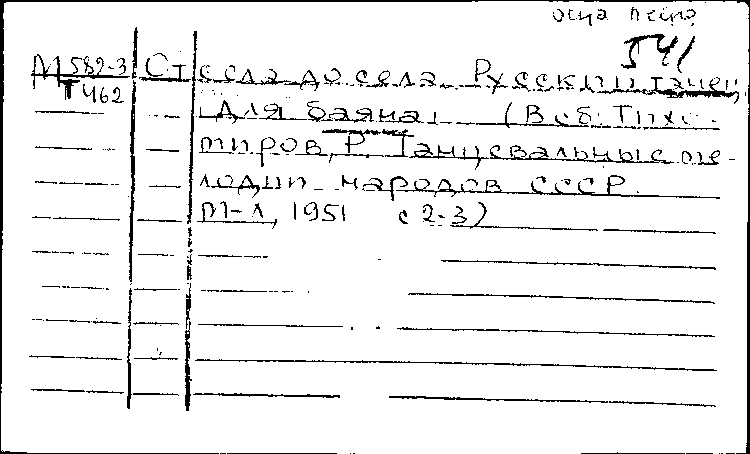 541
М 582-3 Ст села до села. Русский танец,
Т 462 Для баяна. (В сб: Тихо-
миров, Р. Танцевальные ме-
лодии народов СССР.
М-Л, 1951 с 2-3)